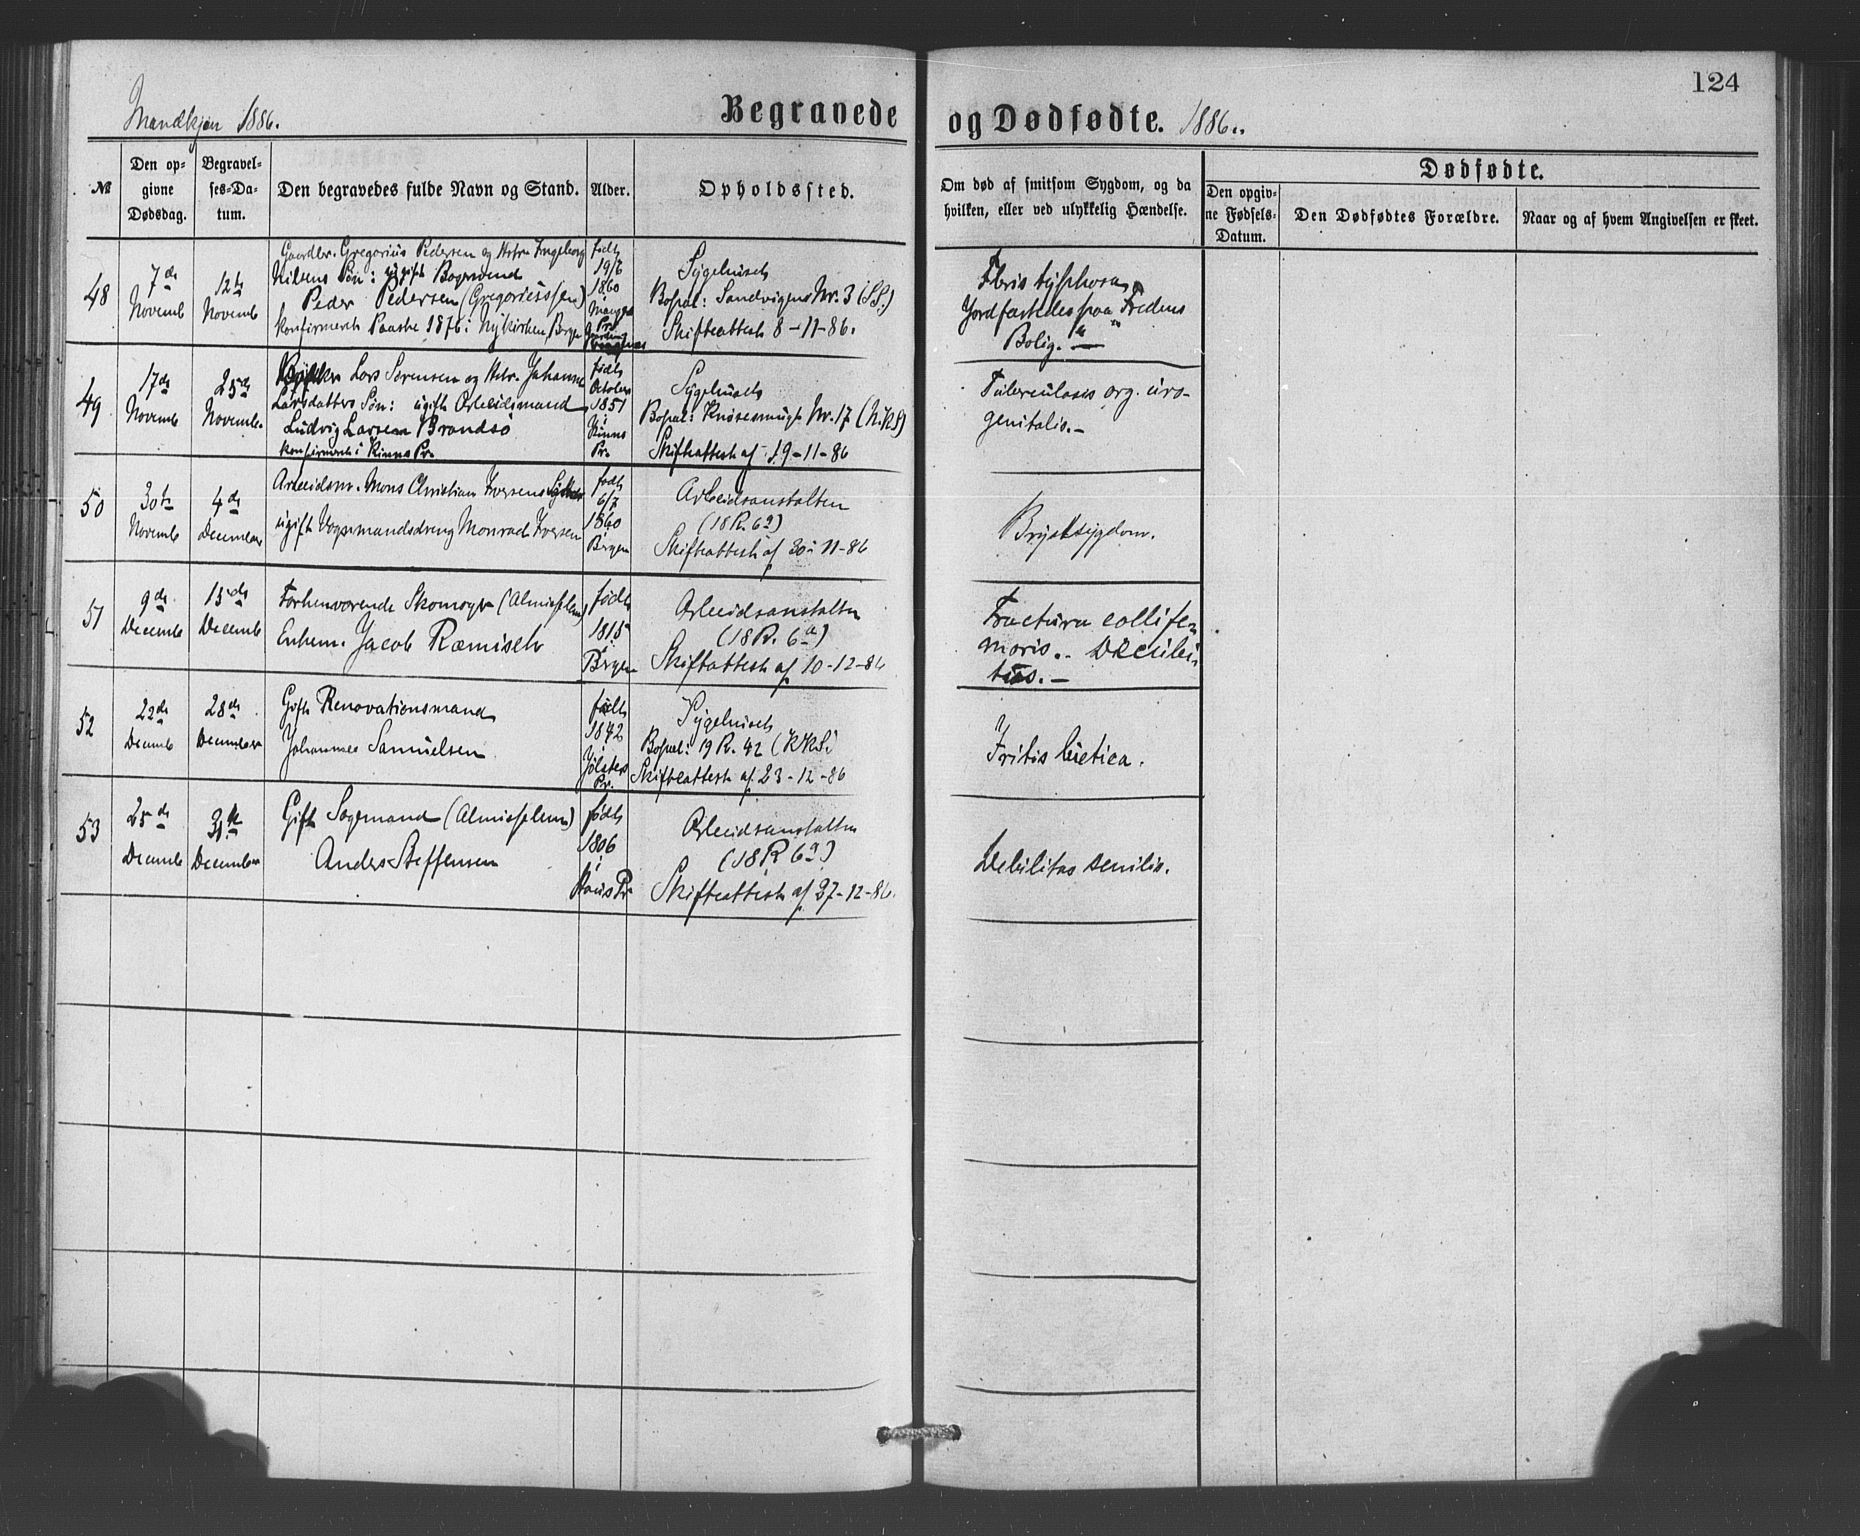 124
Mandkjøn 1886.
Begravede og Dødfødte. 1886.
№
Den op-
givne
Dødsdag.
Begravel-
ses-Da-
tum.
Den begravedes fulde Navn og Stand.
Alder.
Opholdssted.
Om død af smitsom Sygdom, og da
hvilken, eller ved ulykkelig Hændelse.
Dødfødte.
Den opgiv-
ne Fødsels-
Datum.
Den Dødfødtes Forældre.
Naar og af hvem Angivelsen er skeet.
48
7de
Novemb
12te
Novemb
Gaardbr. Gregorius Pedersen og Hstr. Ingeborg
Nilsens Søn: ugift Bogsvend
Peder Pedersen (Gregoriussen)
konfirmert Paaske 1876 i Nykirken, Bergen
født
19/6
1860
i
Manger
Pr.
Sygehuset
Bopæl: Sandvigens Nr. 3 (SS.)
Skifteattest 8-11-86.
Febris typhosa,
Jordfæstedes paa "Fredens
Bolig."
49
17de
Novemb
25de
Novemb.
Lars Sørensen og Hstr. Johanne
Larsdatters Søn: ugift Arbeidsmand
Ludvig Larsen Brandsø
konfirmert i Kinns Pr.
født
October
1851
i
Kinns
Pr.
Sygehuset
Bopæl: Knøsesmuget Nr. 17 (N.K.S)
Skifteattest af 19-11-86
Tuberculosis org. uro-
genitalis.-
50
30te
Novemb
4de
December
Arbeidsm. Mons Christian Iversens
ugift Vognmandsdreng Monrad Iversen
født
6/7
1860
i
Bergen
Arbeidsanstalten
(18 R. 6a)
Skifteattest af 30-11-86
Brystsygdom.
51
9de
Decemb
15de
Decemb
Forhenværende Skomager (Almisselem)
Enkem. Jacob Ræmisch
født
1815
i
Bergen
Arbeidsanstalten
(18 R. 6a)
Skifteattest af 10-12-86
Fractura colli fe-
moris.- Decubi-
tus.-
52
22de
Decemb
28de
December
Gift Renovationsmand
Johannes Samuelsen
født
1842
i
Jølsters
Pr.
Sygehuset
Bopæl: 19 R. 42 (KKS)
Skifteattest af 23-12-86
Iritis luetica.
53
25de
Decemb
31te
December
Gift Sagemand (Almisselem)
Anders Steffensen
født
1806
i
Haus Pr
Arbeidsanstalten
(18 R 6a)
Skifteattest af 27-12-86.
Debilitas senilis.